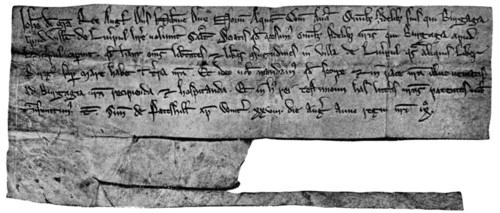 Joh di gra Rex Angl Dns Hybern Dux Norm Aquit Com And Omibz fidelibz suis qui Burgagia
apud vill de Liverpul here voluerint Salt Sciatis qd concessim omibz fidelibz nris qui Burgagia apud
Liverpul ceperint qd habeant oms libtates et libas consuetudines in villa de Liverpul qs aliquis liber
Burg sup mare habet in terra nra Et ideo vob mandam qd secure et in pace nra illuc veniatis
ad Burgagia nra recipienda et hospitanda Et in hui rei testimonium has litas nras patentes vob
transmittim T Sim de Pateshill ap Wint xxviii die Aug anno regni nri ix